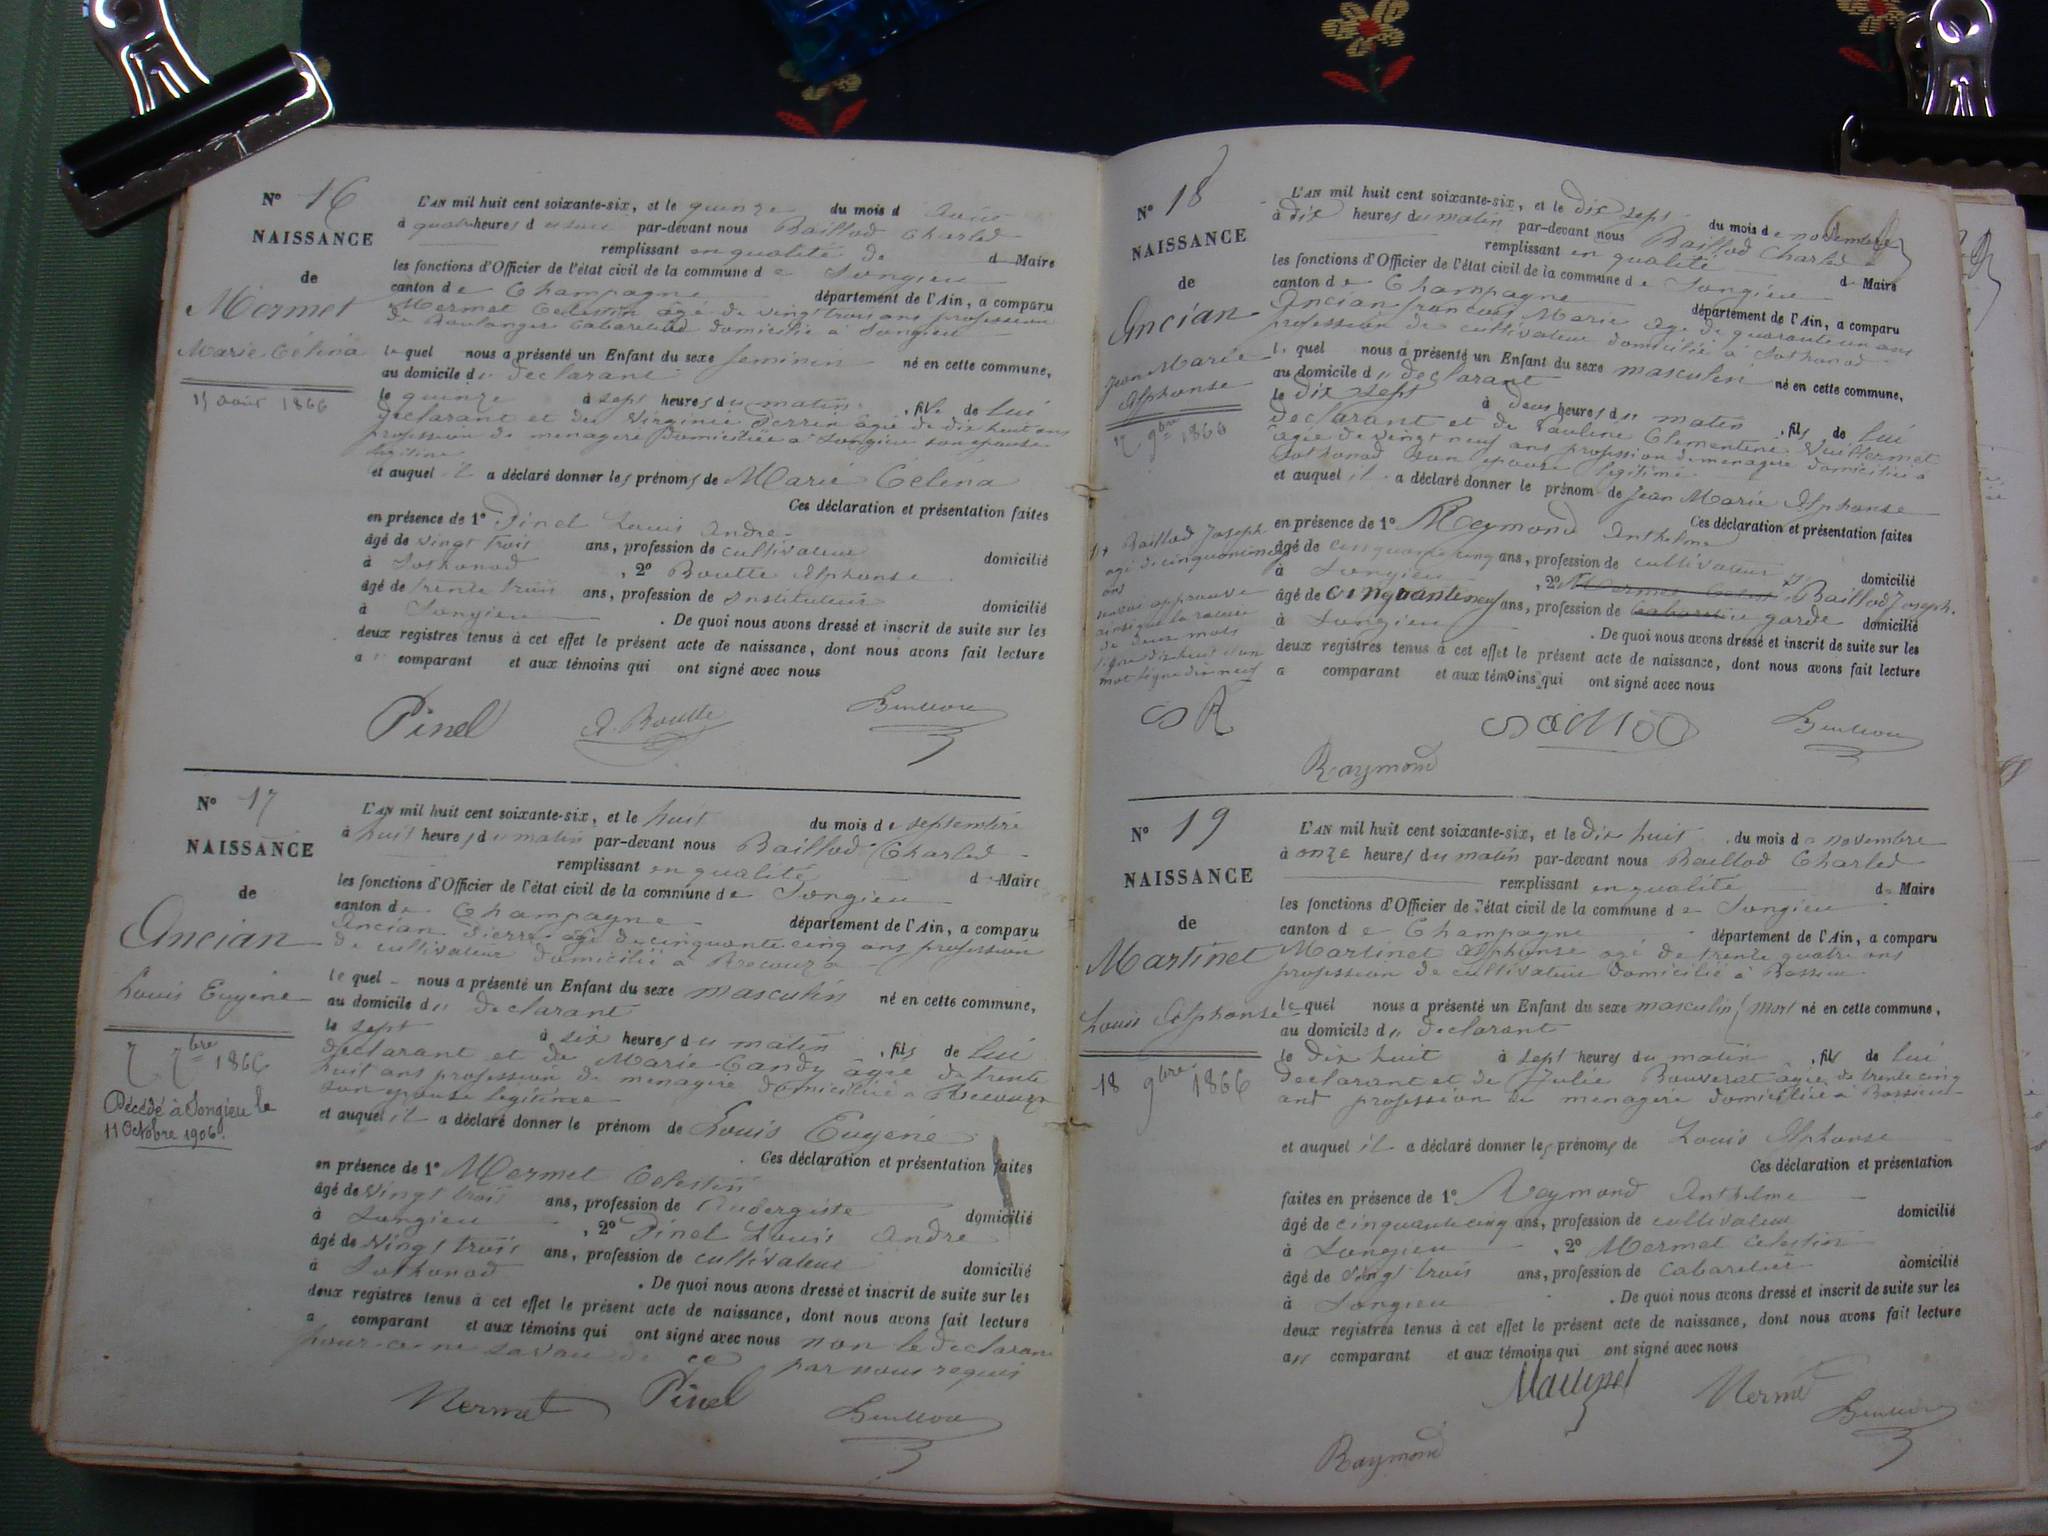 N° 16
NAISSANCE
de
Mermet
Marie Célina
15 août 1866
L'AN mil huit cent soixante-six, et le quinze du mois d août
à quatre heures du soir par-devant nous Baillod Charles
remplissant en qualité de d Maire
les fonctions d'Officier de l'état civil de la commune de Songieu
canton de Champagne département de l'Ain, a comparu
Mermet Celestin âgé de vingt trois ans profession
de Boulanger Cabaretier domicilié à Songieu
lequel nous a présenté un Enfant du sexe feminin né en cette commune,
au domicile du declarant
le quinze à sept heures du matin, fille de lui
declarant et de Virginie Perrin âgée de dix huit ans
profession de menagere domiciliée à Songieu son epouse
legitime
et auquel il a déclaré donner les prénoms de Marie Célina
Ces déclaration et présentation faites
en présence de 1° Pinel Louis andre
âgé de vingt trois ans, profession de cultivateur domicilié
à Sothonod, 2° Boutte Alphonse
âgé de trente trois ans, profession de instituteur domicilié
à Songieu. De quoi nous avons dressé et inscrit de suite sur les
deux registres tenus à cet effet le présent acte de naissance, dont nous avons fait lecture
au comparant et aux témoins qui ont signé avec nous
Pinel A. Boutte
N° 17
NAISSANCE
de
Ancian
Louis Eugène
7 7bre 1866
Décédé à Songieu le
11 Octobre 1906.
L'AN mil huit cent soixante-six, et le huit du mois de septembre
à huit heures du matin par-devant nous Baillod Charles
remplissant en qualité d Maire
les fonctions d'Officier de l'état civil de la commune de Songieu
canton de Champagne département de l'Ain, a comparu
Ancian Pierre âgé de cinquante cinq ans profession
de cultivateur domicilié a
lequel nous a présenté un Enfant du sexe masculin né en cette commune,
au domicile du declarant
le sept à six heures du matin, fils de lui
declarant et de Marie Candy âgée de trente
huit ans profession de menagere domiciliée a
son epouse legitime
et auquel il a déclaré donner le prénom de Louis Eugene
Ces déclaration et présentation faites
en présence de 1° Mermet Celestin
âgé de vingt trois ans, profession de Aubergiste domicilié
à Songieu, 2° Pinel Louis Andre
âgé de vingt trois ans, profession de cultivateur domicilié
à Sothonod. De quoi nous avons dressé et inscrit de suite sur les
deux registres tenus à cet effet le présent acte de naissance, dont nous avons fait lecture
a comparant et aux témoins qui ont signé avec nous non le declarant
pour ce ne savoir de ce par nous requis
Mermet Pinel
N° 18
NAISSANCE
de
Ancian
Jean Marie
Alphonse
17 9bre 1866
Baillod Joseph
agé de cinquante neuf
ans
renvoi approuvé
ainsi que la rature
de deux mots
ligne dix huit et un
mot ligne dix neuf
L'AN mil huit cent soixante-six, et le dix sept du mois de novembre
à dix heures du matin par-devant nous Baillod Charles
remplissant en qualité d Maire
les fonctions d'Officier de l'état civil de la commune de Songieu
canton de Champagne département de l'Ain, a comparu
Ancian françois Marie âgé de quarante un ans
profession de cultivateur domicilié à Sothonod
lequel nous a présenté un Enfant du sexe masculin né en cette commune,
au domicile du declarant
le dix sept à deux heures du matin, fils de lui
declarant et de Pauline Clementine Vuillermet
âgée de vingt neuf ans profession de menagere domiciliée à
Sothonod son epouse legitime
et auquel il a déclaré donner le prénom de Jean Marie Alphonse
Ces déclaration et présentation faites
en présence de 1° Reymond Anthelme
âgé de cinquante cinq ans, profession de cultivateur domicilié
à Songieu, 2° Mermet Celest Baillod Joseph.
âgé de cinquante neuf ans, profession de cabaretie garde domicilié
à Songieu. De quoi nous avons dressé et inscrit de suite sur les
deux registres tenus à cet effet le présent acte de naissance, dont nous avons fait lecture
a comparant et aux témoins qui ont signé avec nous
Raymond
N° 19
NAISSANCE
de
Martinet
Louis Alphonse
18 9bre 1866
L'AN mil huit cent soixante-six, et le dix huit du mois de novembre
à onze heures du matin par-devant nous Baillod Charles
remplissant en qualité de Maire
les fonctions d'Officier de l'état civil de la commune de Songieu
canton de Champagne département de l'Ain, a comparu
Martinet Alphonse agé de trente quatre ans
profession de cultivateur domicilié à Bassieu
lequel nous a présenté un Enfant du sexe masculin mort né en cette commune,
au domicile du declarant
le dix huit à sept heures du matin, fils de lui
declarant et de Julie Bouverat âgée de trente cinq
ans profession de menagere domiciliée à Bassieu
et auquel il a déclaré donner les prénoms de Louis Alphonse
Ces déclaration et présentation
faites en présence de 1° Reymond Anthelme
âgé de cinquante cinq ans, profession de cultivateur domicilié
à Songieu, 2° Mermet Celestin
âgé de vingt trois ans, profession de Cabaretier domicilié
à Songieu. De quoi nous avons dressé et inscrit de suite sur les
deux registres tenus à cet effet le présent acte de naissance, dont nous avons fait lecture
au comparant et aux témoins qui ont signé avec nous
Martinet Mermet
Raymond